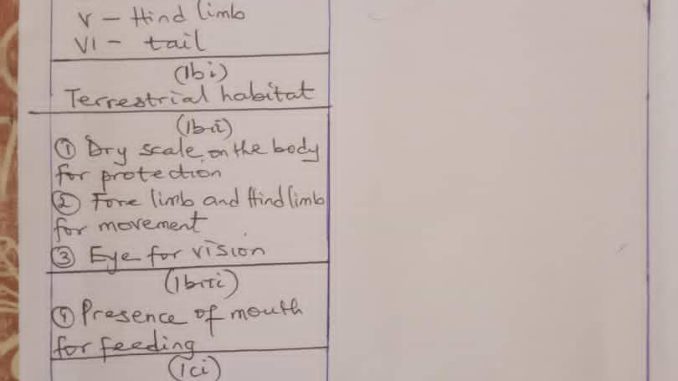 V – Hind limb
VI – tail
(1bi)
Terrestrial habitat
(1bii)
① Dry scale on the body
for protection
② Fore limb and Hind limb
for movement
③ Eye for vision
(1biii)
④ Presence of mouth
for feeding
(1ci)